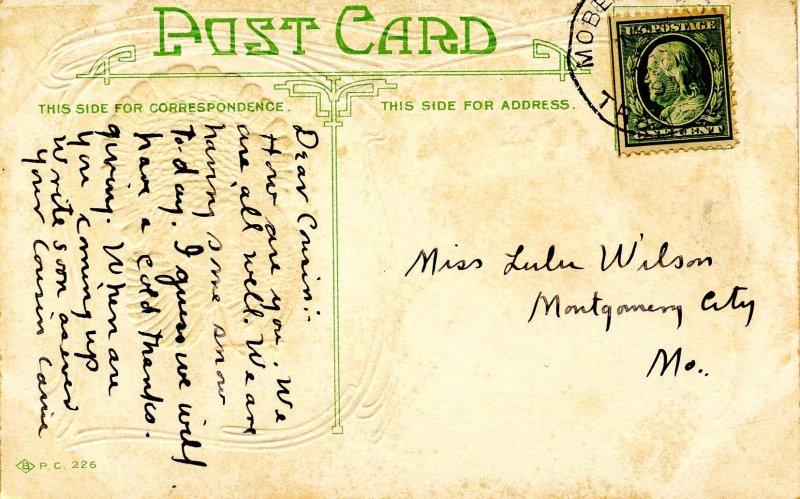 POST CARD
THIS SIDE FOR CORRESPONDENCE.
THIS SIDE FOR ADDRESS.
MOBE
TR
U.S. POSTAGE
ONE CENT
Dear Cousin:-
How are you. We
are all well. We are
having some snow
today. I guess we will
have a cold thanks-
giving. When are
you coming up
write soon as ever
your Cousin Carrie
Miss Lulu Wilson
Montgomery City
Mo..
B P.C. 226